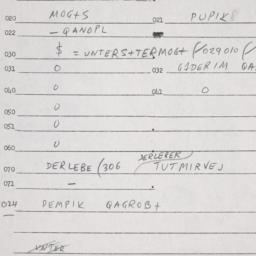 020 MOGTS 021 PUPIK8
022 -QANOPL
030 $ = UNTERS+TERMOGT (029010 (
031 0 032 GIDERIM QA
040 0 041 0
050 0
052 0
060 0
DERLEREK
070 DERLEBE (306 TUTMIRVEJ
071 -
024 DEMPIK QAGROB+
UNTER